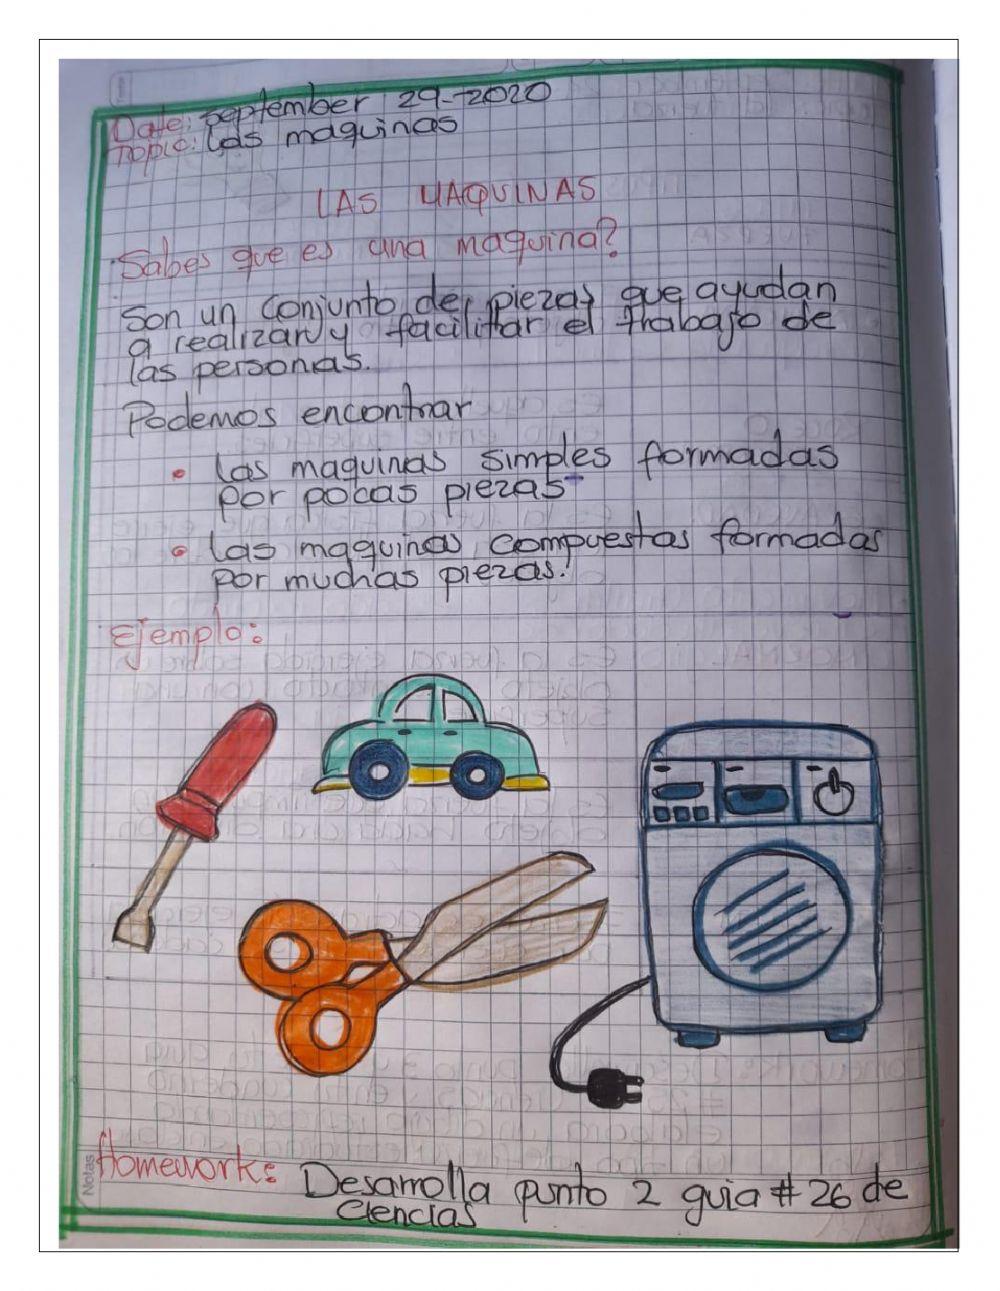 Date: september 29-2020
Topic: las maquinas
LAS MAQUINAS
Sabes que es una maquina?
Son un conjunto de piezas que ayudan
a realizar y facilitar el trabajo de
las personas.
Podemos encontrar
• las maquinas simples formadas
por pocas piezas
• las maquinas compuestas formadas
por muchas piezas.
Ejemplo:
Notas
Homework: Desarrolla punto 2 guia # 26 de
ciencias